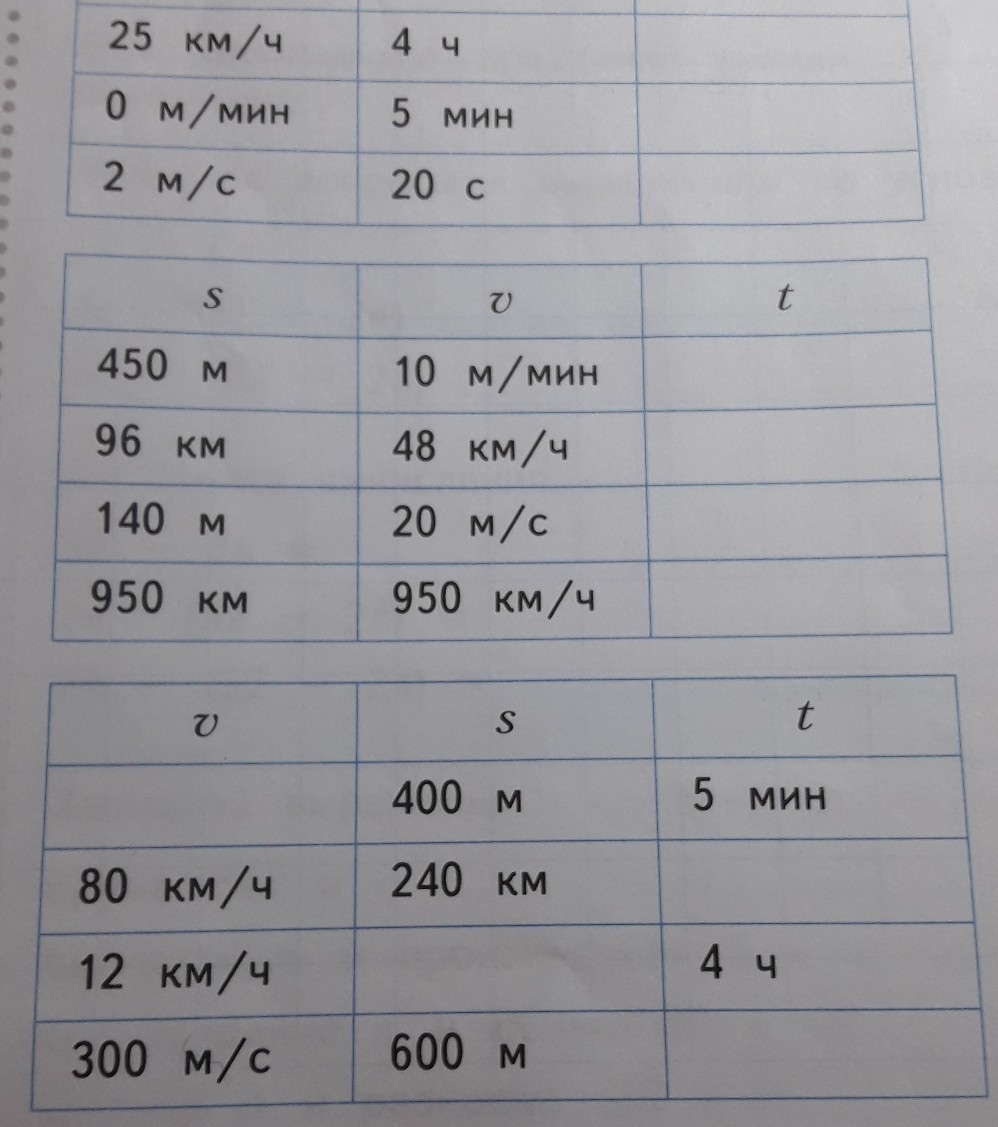 25 км/ч 4 ч
0 м/мин 5 мин
2 м/с 20 с
s v t
450 м 10 м/мин
96 км 48 км/ч
140 м 20 м/с
950 км 950 км/ч
v s t
400 м 5 мин
80 км/ч 240 км
12 км/ч 4 ч
300 м/с 600 м